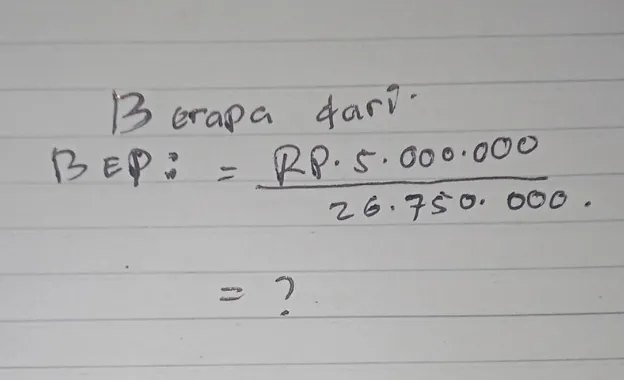 Berapa dari
BEP: = RP. 5.000.000
26.750.000.
= ?